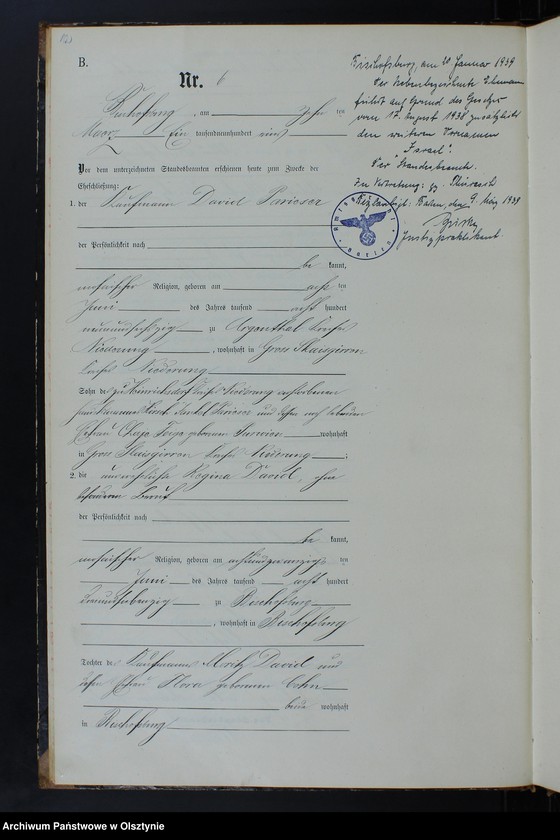 B.
Nr. 6
Bischofsburg, am Zehn ten
März Ein tausendneunhundert eins
Vor dem unterzeichneten Standesbeamten erschienen heute zum Zwecke der
Eheschließung:
1. der Kaufmann David Parieser
der Persönlichkeit nach
be kannt,
mosaischer Religion, geboren am acht ten
Juni des Jahres tausend acht hundert
neunundsechszig zu Argenthal Kreis
Niederung, wohnhaft in Gross Skaisgirren
Kreis Niederung
Sohn des zu Heinrichsdorf Kreis Niederung verstorbenen
Jankel Parieser und dessen noch lebenden
Ehefrau geborenen wohnhaft
in Gross Skaisgirren Kreis Niederung;
2. die unverehelichte Regina David, ohne
besonderen Beruf
der Persönlichkeit nach
be kannt,
mosaischer Religion, geboren am achtundzwanzigs ten
Juni des Jahres tausend acht hundert
zu Bischofsburg
, wohnhaft in Bischofsburg
Tochter des Kaufmanns Moritz David und
dessen Ehefrau Flora geborenen Cohn
beide wohnhaft
in Bischofsburg
Bischofsburg, am 20 Januar 1939
Der Nebenbezeichnete Ehemann
führt auf Grund des Gesetzes
vom 17. August 1938 zusätzlich
den weiteren Vornamen
"Israel".
Der Standesbeamte.
In Vertretung: gz.
Beglaubigt: den 9. März 1939
Justizpraktikant
Archiwum Państwowe w Olsztynie